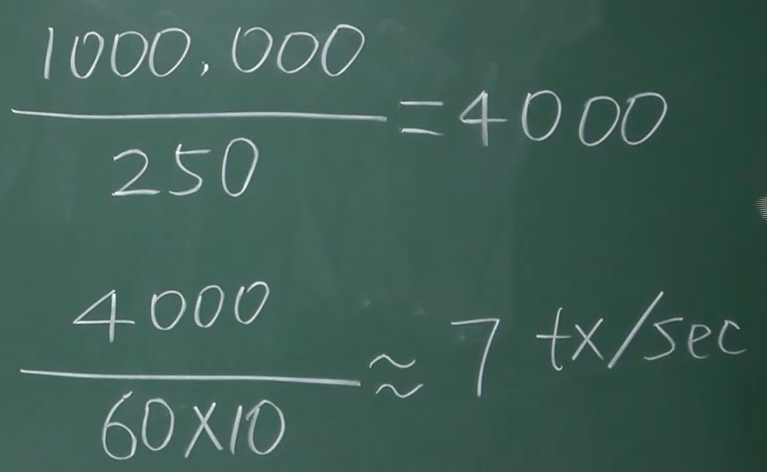 1000,000
250
=4000
4000
60×10
≈ 7 tx/sec